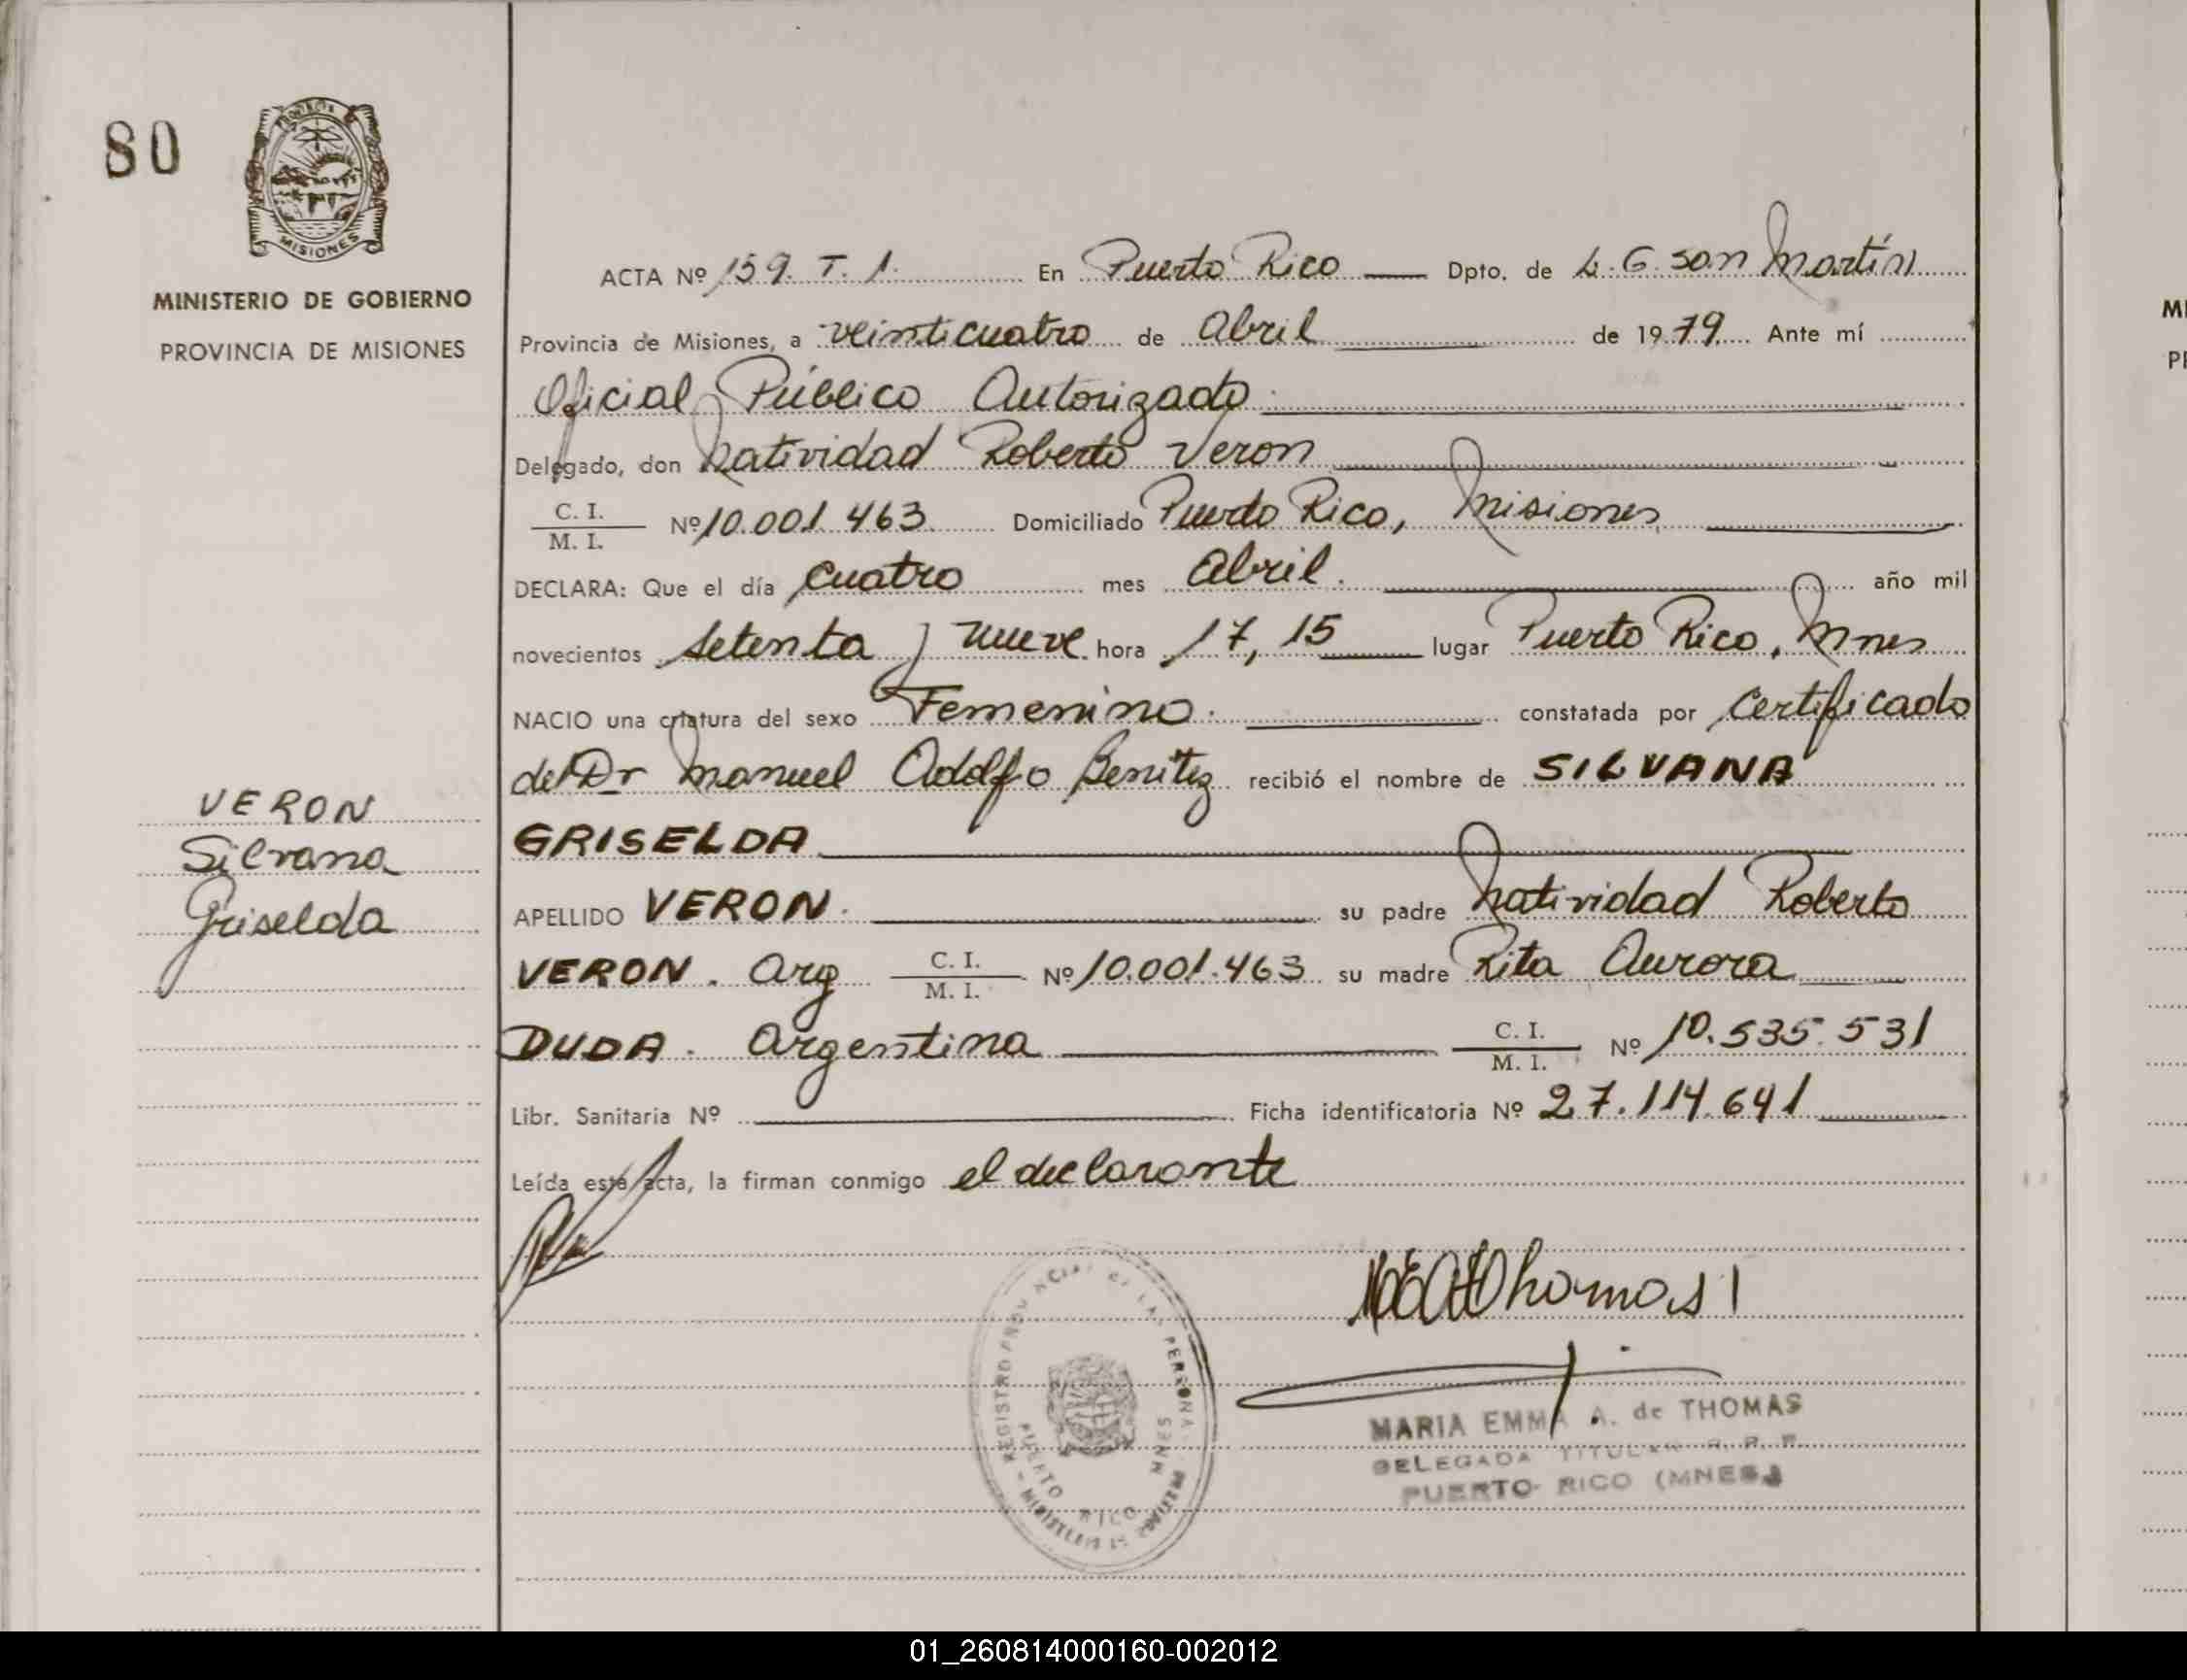 80
MISIONES
MINISTERIO DE GOBIERNO
PROVINCIA DE MISIONES
ACTA Nº 159. T. 1. En Puerto Rico Dpto. de L. G. San Martín
Provincia de Misiones, a veinticuatro de Abril de 1979. Ante mí
Oficial Público Autorizado
Delegado, don Natividad Roberto Veron
C. I.
M. I. Nº 10.001.463 Domiciliado Puerto Rico, Misiones
DECLARA: Que el día cuatro mes Abril. año mil
novecientos setenta y nueve hora 17,15 lugar Puerto Rico, Mnes
NACIO una criatura del sexo Femenino. constatada por Certificado
del Dr Manuel Adolfo Benitez recibió el nombre de SILVANA
GRISELDA
APELLIDO VERON. su padre Natividad Roberto
VERON. Arg C. I.
M. I. Nº 10.001.463 su madre Rita Aurora
DUDA. Argentina C. I.
M. I. Nº 10.535.531
Libr. Sanitaria Nº Ficha identificatoria Nº 27.114.641
Leída esta acta, la firman conmigo el declarante
VERON
Silvana
Griselda
Thomas
MARIA EMMA A. de THOMAS
DELEGADA TITULAR R. P. P.
PUERTO RICO (MNES.)
REGISTRO PROVINCIAL DE LAS PERSONAS
PUERTO RICO MNES
01_260814000160-002012